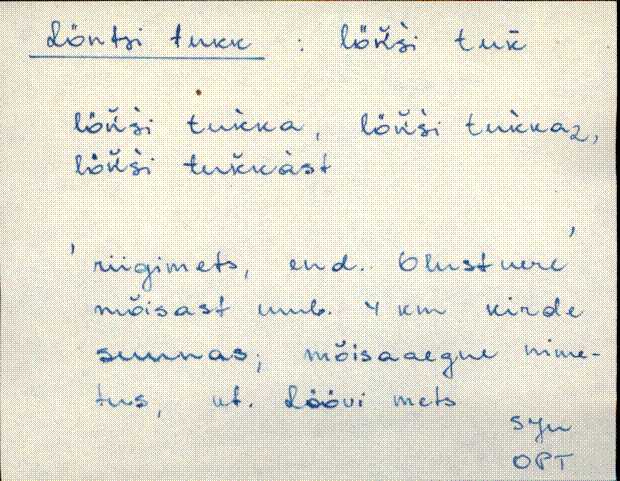 Löntsi tukk : löǹ̌ši tuk̄
löǹ̌ši tuk̀ka, löǹ̌ši tuk̀kaz,
löǹ̌ši tuk̆kàst
'riigimets, end. Olustvere'
mõisast umb. 4 km kirde
suunas; mõisaaegne nime-
tus, vt. Löövi mets
syn
OPT